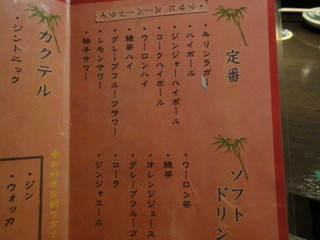 ・アサヒスーパードライ
定番
・キリンラガー
・ハイボール
・ジンジャーハイボール
・コークハイボール
・ウーロンハイ
・緑茶ハイ
・グレープフルーツサワー
・レモンサワー
・柚子サワー
ソフト
ドリン
・ウーロン茶
・緑茶
・オレンジジュース
・グレープフルーツ
・コーラ
・ジンジャエール
カクテル
・ジントニック
・ジン
・ウォッカ